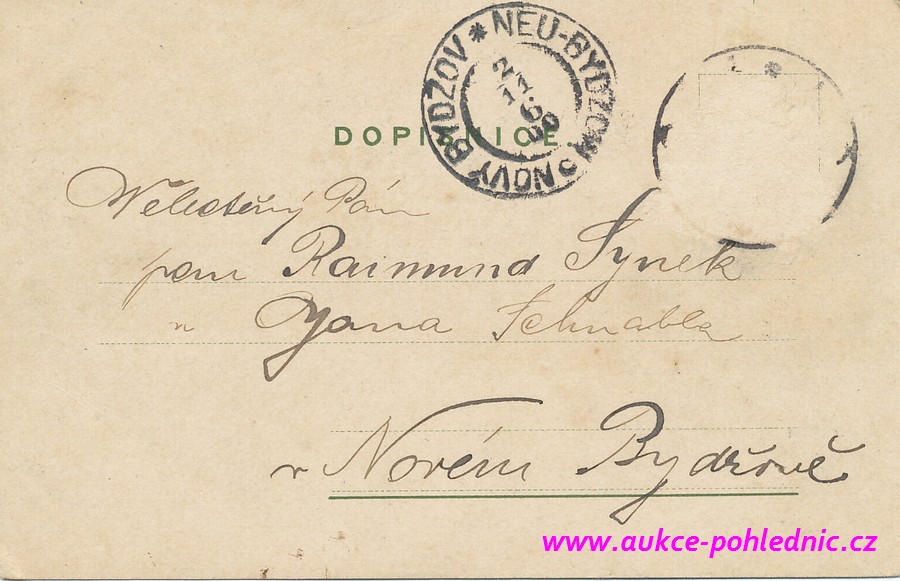 NEU-BYDŽOV * NOVÝ BYDŽOV *
2/11
6
00
DOPISNICE.
Wěhctěný Pán
pan Raimund Synek
u Jana Schnabla
v Novém Bydžově
www.aukce-pohlednic.cz